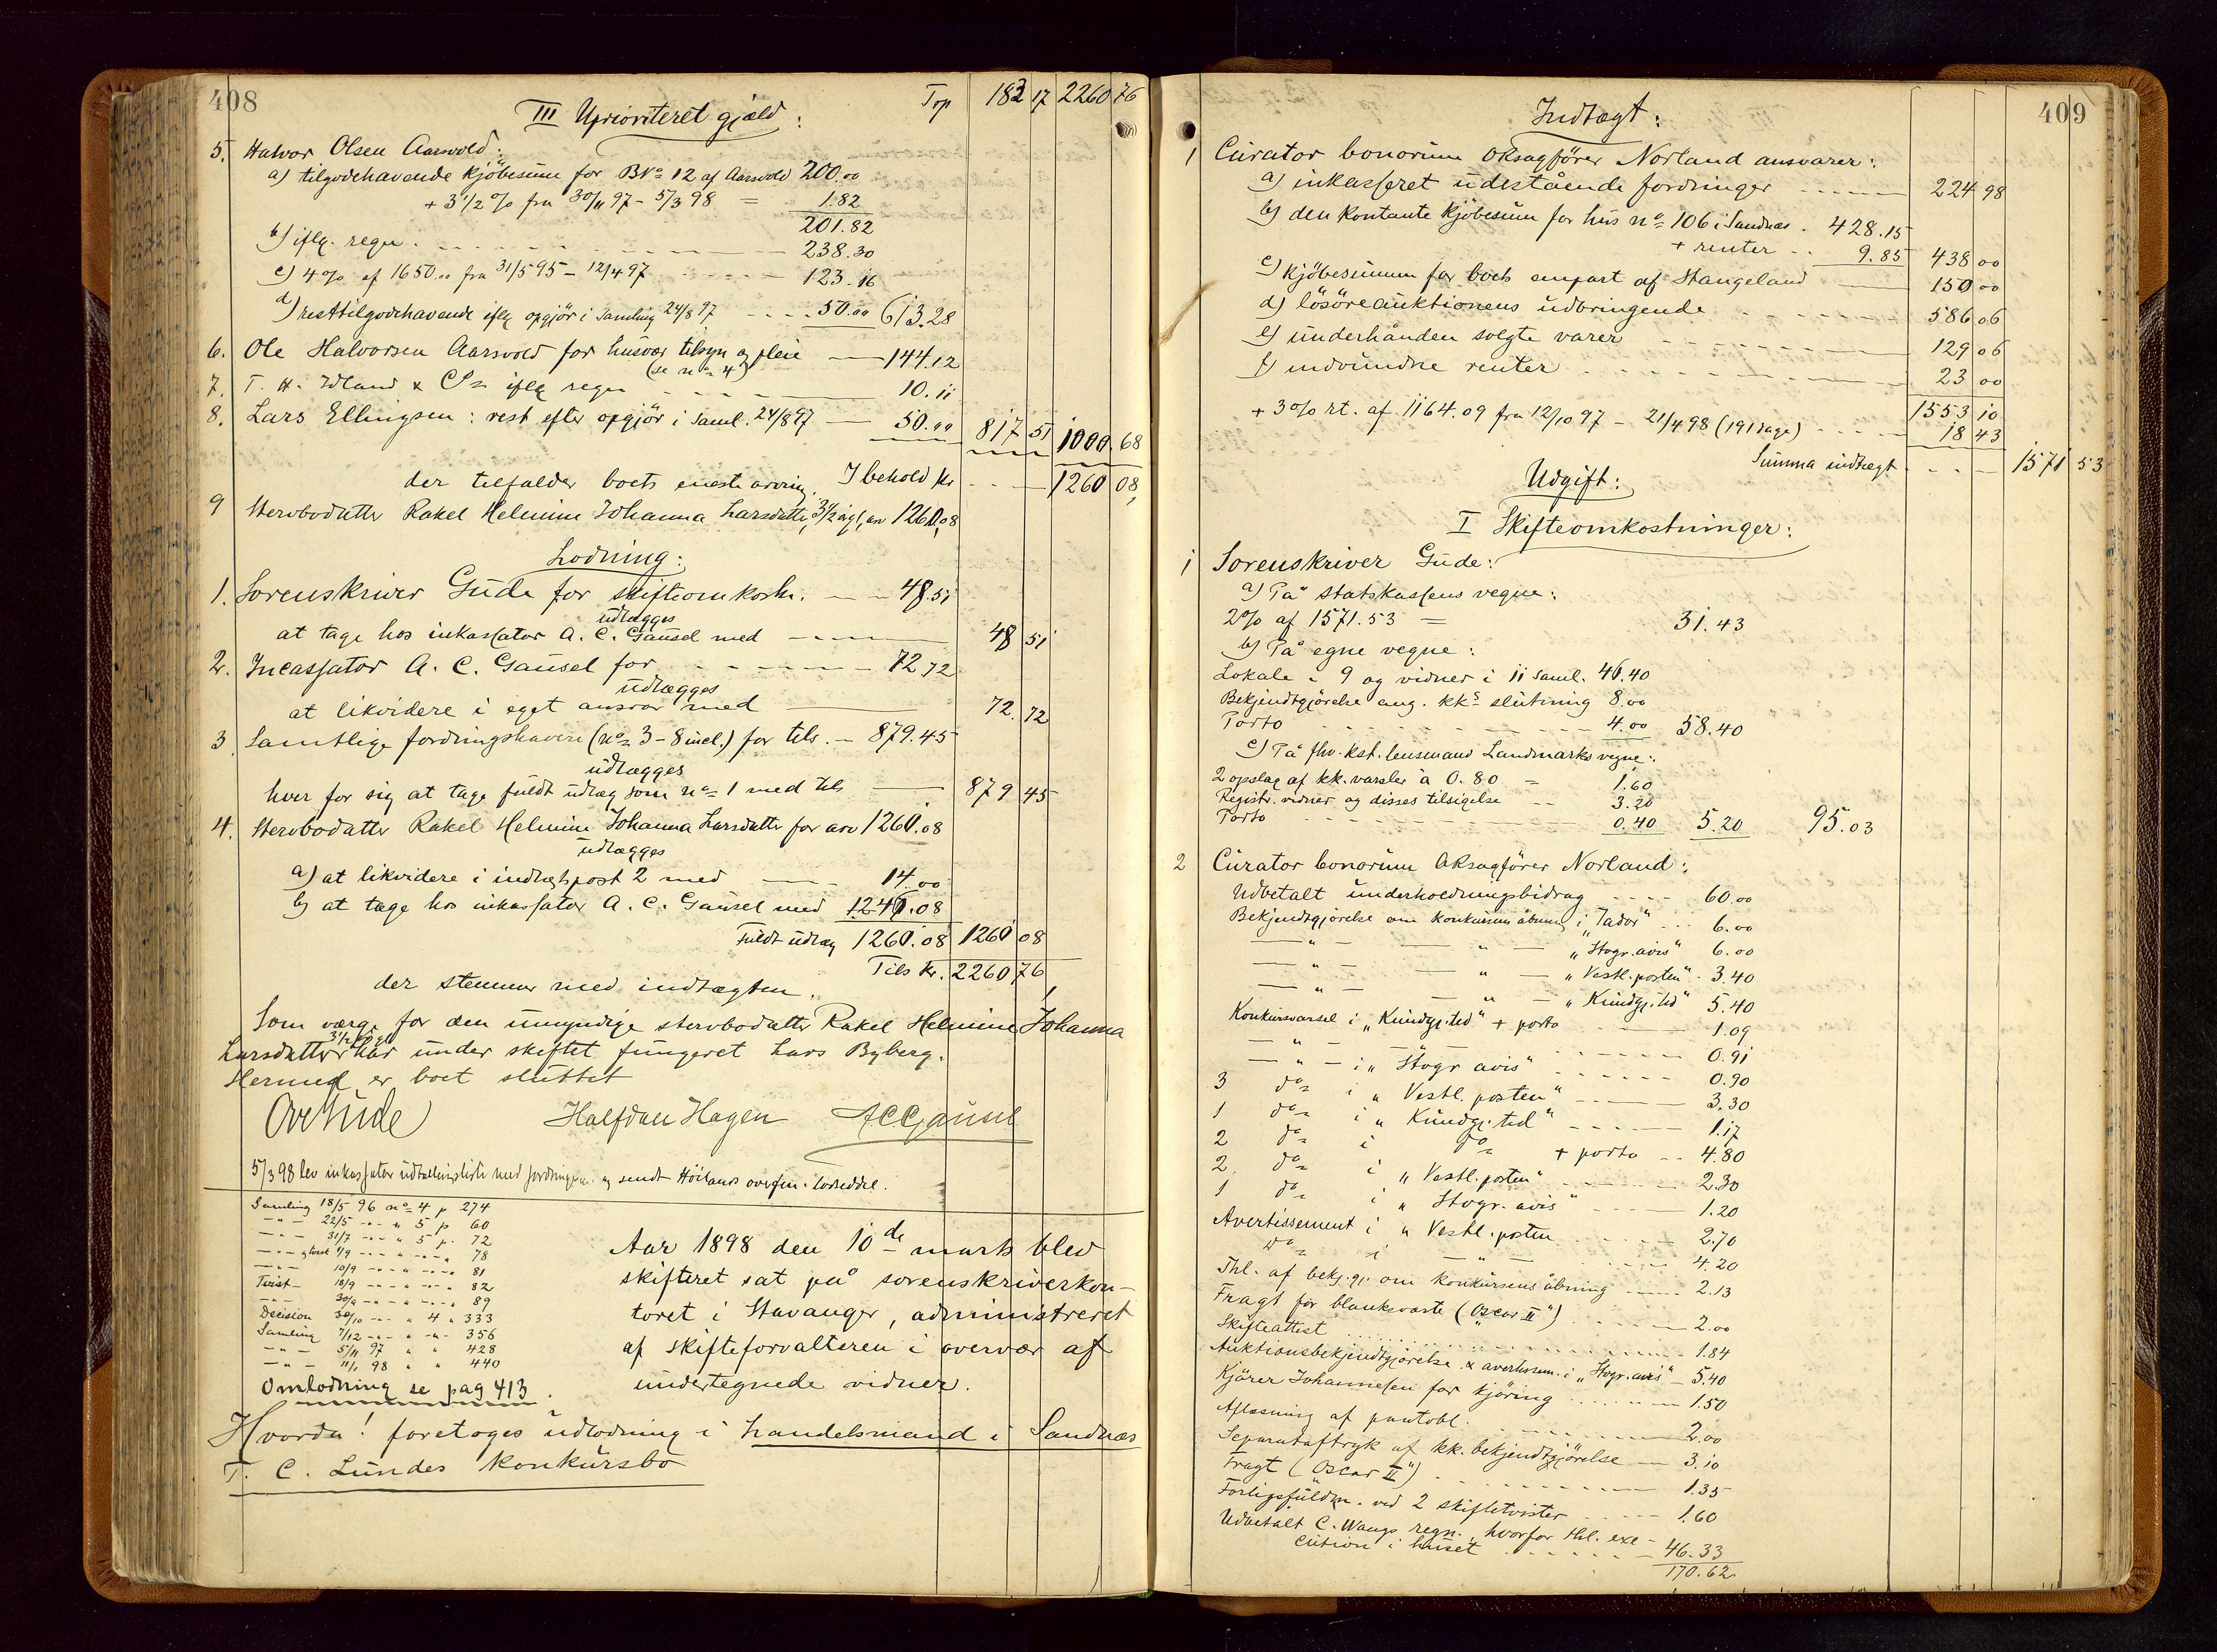 408
III Uprioriteret gjæld: Trp 183 17 2260 76
5. Halvor Olsen Aarsvold:
a) tilgodehavende kjöbesum for BNo 12 af Aarsvold 200.00
+ 3 1/2 % fra 30/11 97 - 5/3 98 = 1.82
201.82
b) iflg. regn. 238.30
c) 4% af 1650.00 fra 31/5 95 - 12/4 97 123.16
d) resttilgodehavende iflg opgjör i samling 24/8 97 50.00 613.28
6. Ole Halvorsen Aarsvold for husvær tilsyn og pleie 144.12
(se no 4)
7. T. H. Idland & Co iflg regn 10.11
8. Lars Ellingsen: rest efter opgjör i saml. 24/8 97 50.00 817 51 1000.68
I behold kr 1260 08
der tilfalder boets eneste arving,
9 Stervbodatter Rakel Helmine Johanna Larsdatter, 3 1/2 år gl, en 1260.08
Lodning:
1. Sorenskriver Gude for skifteomkostn. 48.51
udlægges
at tage hos inkassator A. C. Gausel med 48 51
2. Incassator A. C. Gausel for 72 72
udlægges
at likvidere i eget ansvar med 72.72
3 Samtlige fordringshavere (no 3-8 incl.) for tils. 879.45
udlægges
hver for sig at tage fuldt udlæg som no 1 med tils 879 45
4. Stervbodatter Rakel Helmine Johanna Larsdatter for arv 1260.08
udlægges
a) at likvidere i indtægtspost 2 med 14.00
b) at tage hos inkassator A. C. Gausel med 1246.08
Fuldt udlæg 1260.08 1260 08
Tils kr. 2260 76
der stemmer med indtægten.
Som værge for den umyndige stervbodatter Rakel Helmine Johanna
Larsdatter 3 1/2 år gl har under skiftet fungeret Lars Byberg.
Hermed er boet sluttet
Ove Gude Halfdan Hagen A C Gausel
5/3 98 blev inkassator udtællingsliste med fordringerne og sendt Höilands overfm. lodseddel.
Samling 18/5 96 no 4 p 274
— " — 22/5 -"- " 5 p 60
— " — 31/7 -"- " 5 p. 72
— " — 1/9 -"- " -"- " 78
— " — 10/9 -"- " -"- " 81
Tvist 18/9 -"- " -"- " 82
— " — 30/9 -"- " -"- " 89
Decision 30/10 -"- " 4 " 333
Samling 7/12 -"- " -"- 356
— " — 5/11 97 " " 428
— " — 11/1 98 " " 440
Omlodning se pag 413.
Aar 1898 den 10de marts blev
skifteret sat på sorenskriverkon-
toret i Stavanger, administreret
af skifteforvalteren i overvær af
undertegnede vidner.
Hvorda! foretoges udlodning i handelsmand i Sandnæs
T. C. Lundes konkursbo
409
Indtægt:
1 Curator bonorum oksagförer Norland ansvarer:
a) inkasseret udestående fordringer 224 98
b) den kontante kjöbesum for hus no 106 i Sandnæs 428.15
+ renter 9.85 438 00
c) kjöbesummen for boets anpart af Stangeland 150 00
d) lösöreauktionens udbringende 586 06
e) underhånden solgte varer 129 06
f) indvundne renter 23 00
1553 10
+ 3% rt. af 1164.09 fra 12/10 97 - 21/4 98 (191 dage) 18 43
Summa indtægt 1571 53
Udgift:
I Skifteomkostninger:
1 Sorenskriver Gude:
a) På statskassens vegne:
2% af 1571.53 = 31.43
b) På egne vegne:
Lokale i 9 og vidner i 11 saml. 46.40
Bekjendtgjörelse ang. kks slutning 8.00
Porto 4.00 58.40
c) På fhv. kst. lensmand Landmarks vegne:
2 opslag af kk. varsler à 0.80 = 1.60
Registr. vidner og disses tilsigelse 3.20
Porto 0.40 5.20 95.03
2 Curator bonorum oksagförer Norland:
Udbetalt underholdningsbidrag 60.00
Bekjendtgjörelse om konkursens åbning i "Jadar" 6.00
— " — — " — "Stvgr. avis" 6.00
— " — — " — "Vestl. posten" 3.40
— " — — " — "Kundgj. tid" 5.40
Konkursvarsel i "Kundgj. tid" + porto 1.09
— " — — 0.91
— " — i "Stvgr avis" 0.90
3 do i "Vestl. posten" 3.30
1 do i "Kundgj. tid" 1.17
2 do i do + porto 4.80
2. do i "Vestl. posten" 2.30
1 do i "Stvgr. avis" 1.20
Avertissement i "Vestl. posten 2.70
do i — " — 4.20
Thl. af bekj.gj. om konkursens åbning 2.13
Fragt for blanksvarte ("Oscar II") 2.00
Skifteattest 1.84
Auktionsbekjendtgjörelse & avertissem. i "Stvgr. avis" 5.40
Kjörer Johannesen for kjöring 1.50
Aflæsning af pantobl. 2.00
Separataftryk af kk. bekjendtgjörelse 3.10
Fragt ("Oscar II") 1.35
Forligsfuldm. ved 2 skiftetvister 1.60
Udbetalt C. Waugs regn. hvorfor thl. exe-
cution i huset 46.33
170.62